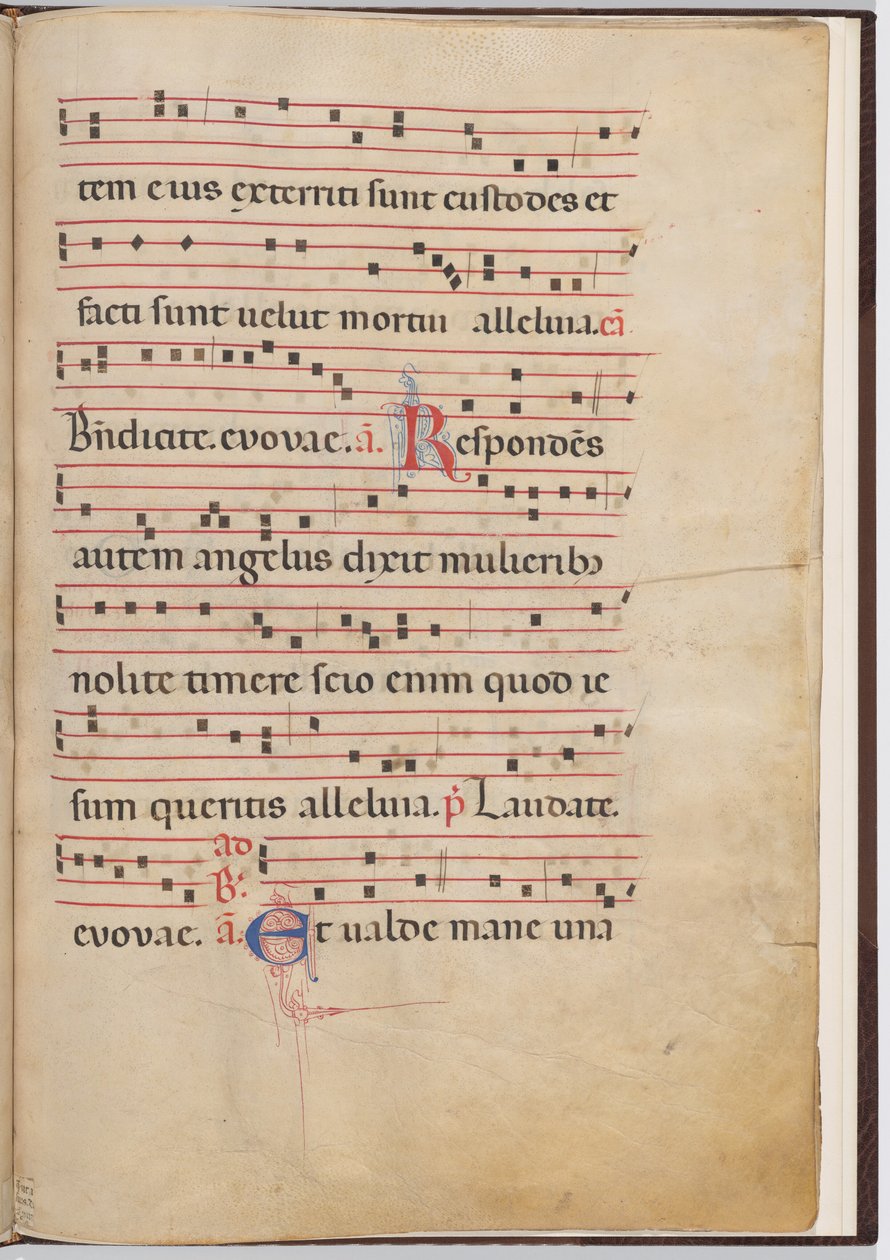 tem eius exterriti sunt custodes et
facti sunt uelut mortui alleluia. cā
Bn̄dicite. evovae. ā. Respondēs
autem angelus dixit mulieribꝫ
nolite timere scio enim quod ie
sum queritis alleluia. p̄ Laudate.
ad
evovae. B. ā. Et ualde mane una